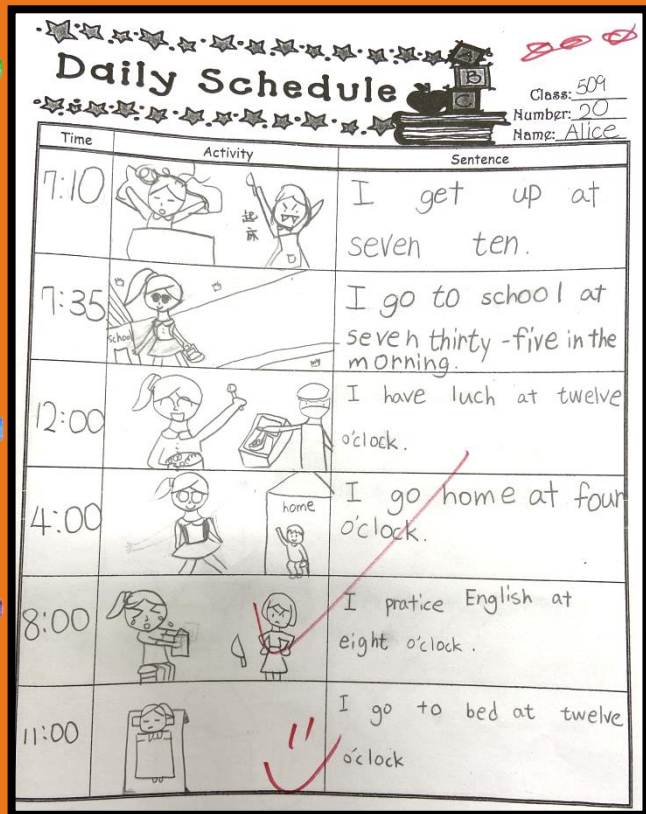 A
B
C
Daily Schedule
Class: 509
Number: 20
Name: Alice
Time
Activity
Sentence
7:10
起
床
I get up at
seven ten.
7:35
School
I go to school at
seven thirty-five in the
morning.
12:00
I have luch at twelve
o'clock.
4:00
home
I go home at four
o'clock.
8:00
I pratice English at
eight o'clock.
11:00
I go to bed at twelve
o'clock